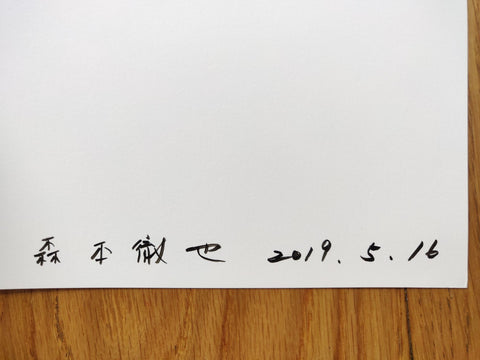 森本徹也 2019.5.16